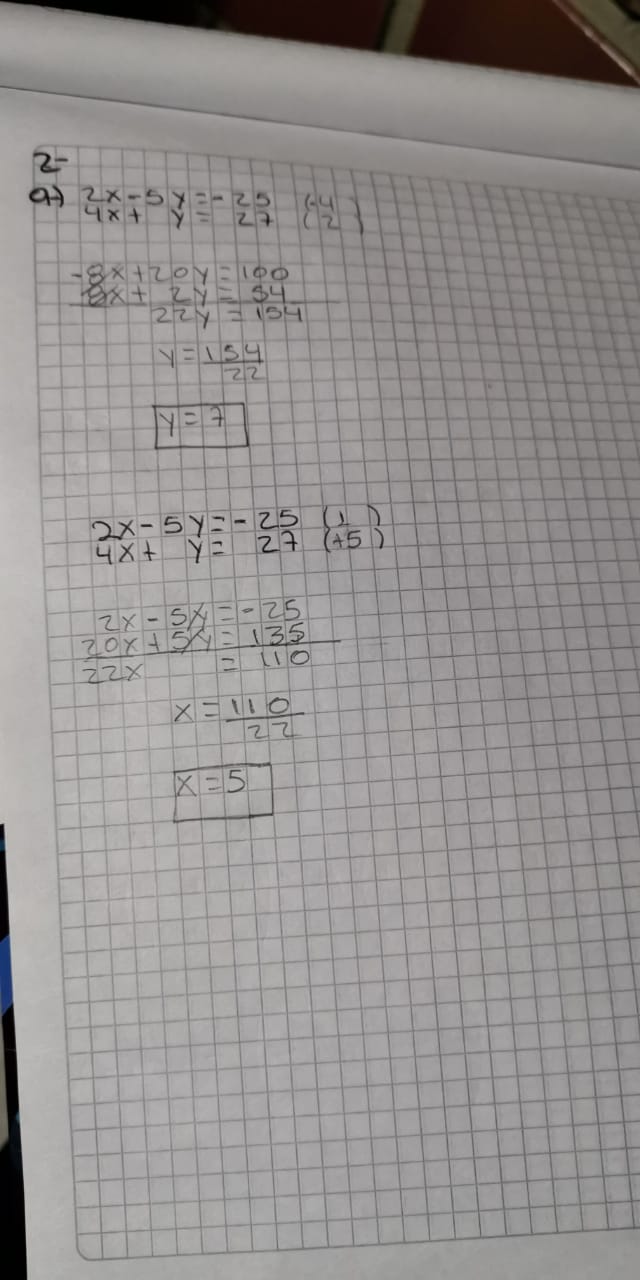 2-
a) 2x - 5y = - 25 (-4
4x + y = 27 ( 2 )
-8x + 20y = 100
8x + 2y = 54
22y = 154
y = 154
22
y = 7
2x - 5y = - 25 (1 )
4x + y = 27 (+5 )
2x - 5y = - 25
20x + 5y = 135
22x = 110
x = 110
22
x = 5